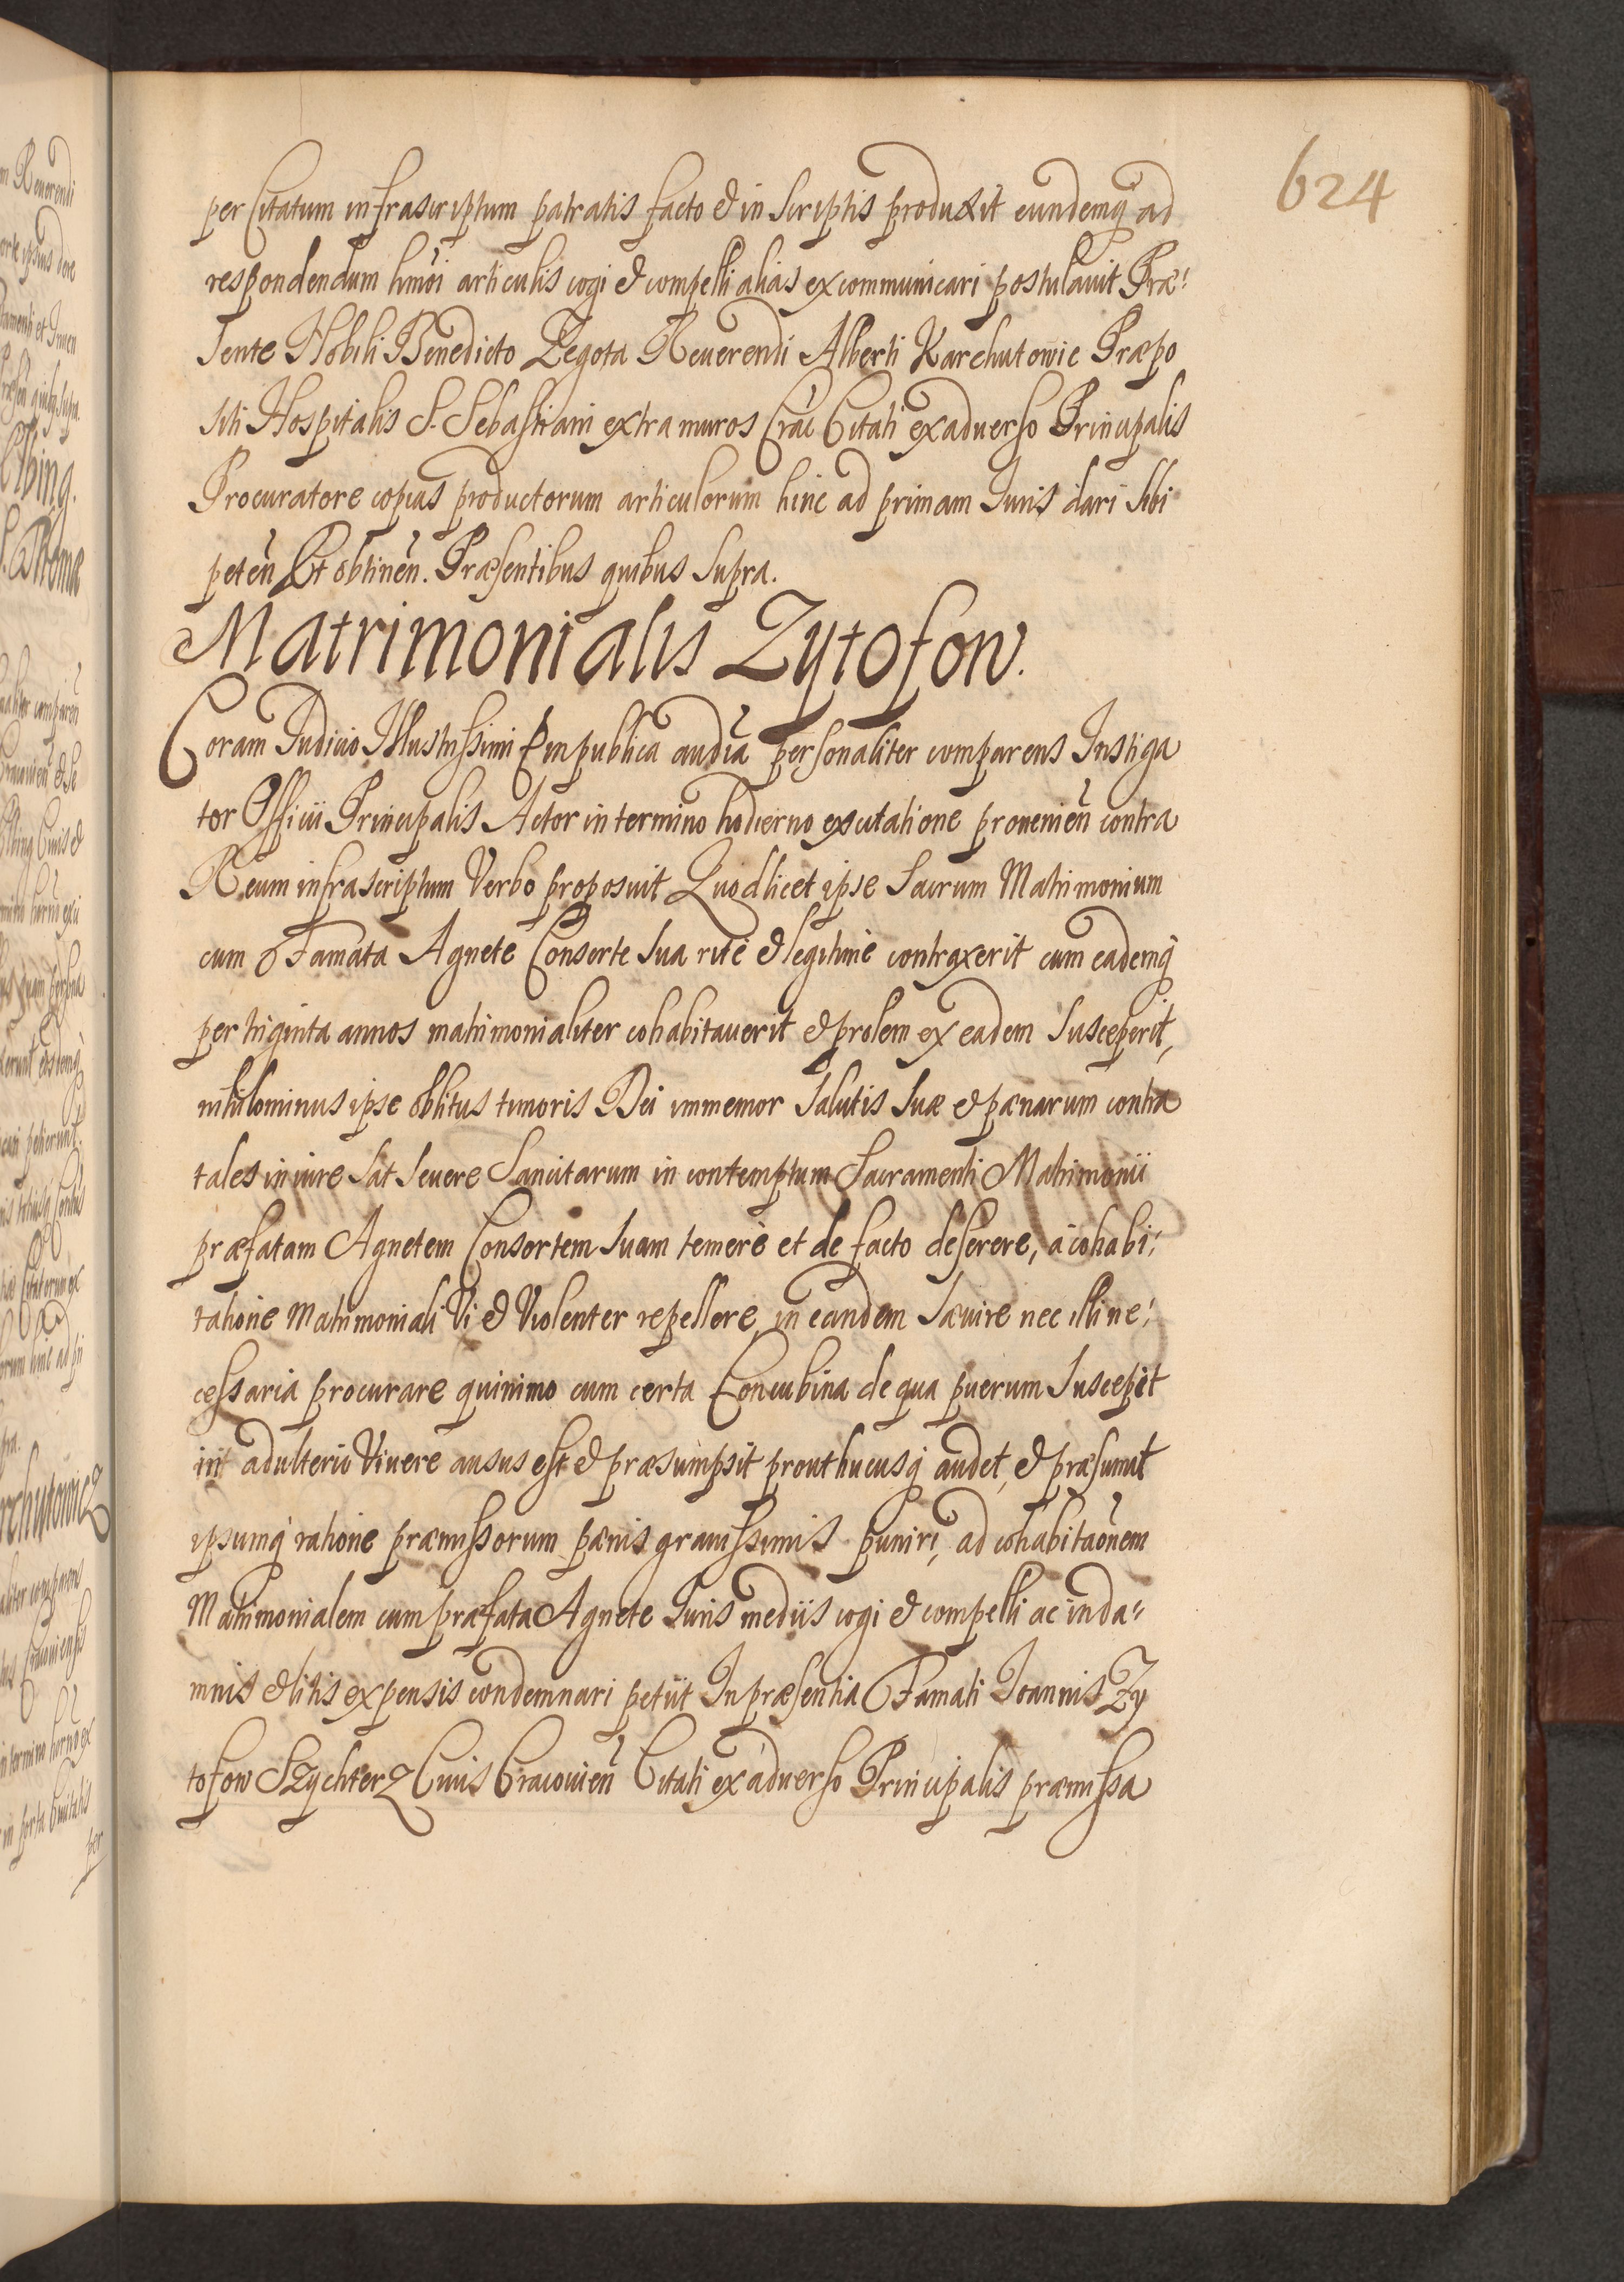 624
per Citatum infrascriptum patratis facto & in scriptis produxit eundemq ad
respondendum hmoi articulis cogi & compelli alias excommunicari postulauit Præ:
sente Nobili Benedicto Zegota Reuerendi Alberti Karchutowic Præpo
siti Hospitalis S. Sebastiani extra muros Crac Citati ex aduerso Principalis
Procuratore copias productorum articulorum hinc ad primam Iuris dari sibi
peten Et obtinen. Præsentibus quibus supra.
Matrimonialis Zytofow.
Coram Iudicio Illustrissimi E in publica audia personaliter comparens Instiga
tor Officii Principalis Actor in termino hodierno ex citatione prouenien contra
Reum infrascriptum Verbo proposuit Quod licet ipse Sacrum Matrimonium
cum Famata Agnete Consorte sua ritè & legitimè contraxerit cum eademq
per triginta annos matrimonialiter cohabitauerit & prolem ex eadem susceperit,
nihilominus ipse oblitus timoris Dei immemor salutis suæ & pænarum contra
tales in iure sat seuere sancitarum in contemptum Sacramenti Matrimonii
præfatam Agnetem Consortem suam temerè et de facto deserere, à cohabi:
tatione Matrimoniali Vi & Violenter repellere, in eandem sæuire nec illi ne:
cessaria procurare quinimo cum certa Concubina de qua puerum suscepit
in adulterio Viuere ausus est & præsumpsit prout hucusq audet, & præsumit
ipsumq ratione præmissorum pænis grauissimis puniri, ad cohabitaonem
Matrimonialem cum præfata Agnete Iuris mediis cogi & compelli ac in da:
mnis & litis expensis condemnari petiit In præsentia Famati Ioannis Zy
tofow Szychterz Ciuis Cracouien Citati ex aduerso Principalis præmissa